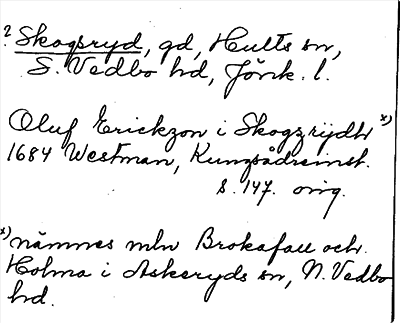 ? Skogsryd, gd, Hults sn,
S. Vedbo hd, Jönk. l.
Oluf Erickzon i Skogzrijdh x)
1684 Westman, Kungsådreinst.
s. 147. orig.
x) nämnes mln Brokafall och
Holma i Askeryds sn, N. Vedbo
hd.